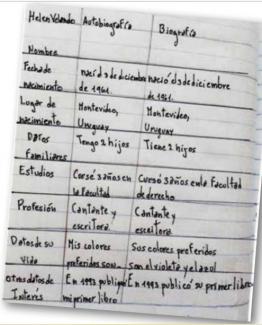 Helen Velando Autobiografía Biografía
Nombre
Fecha de nací el 3 de diciembre nació el 3 de diciembre
nacimiento de 1961. de 1961.
Lugar de Montevideo, Montevideo,
nacimiento Uruguay Uruguay
Datos Tengo 2 hijos Tiene 2 hijos
Familiares
Estudios Cursé 3 años en Cursó 3 años en la Facultad
la Facultad de derecho
Profesión Cantante y Cantante y
escritora. escritora.
Datos de su Mis colores Sus colores preferidos
vida preferidos son... son el violeta y el azul
otros datos de En 1993 publiqué En 1993 publicó su primer libro
Interés mi primer libro